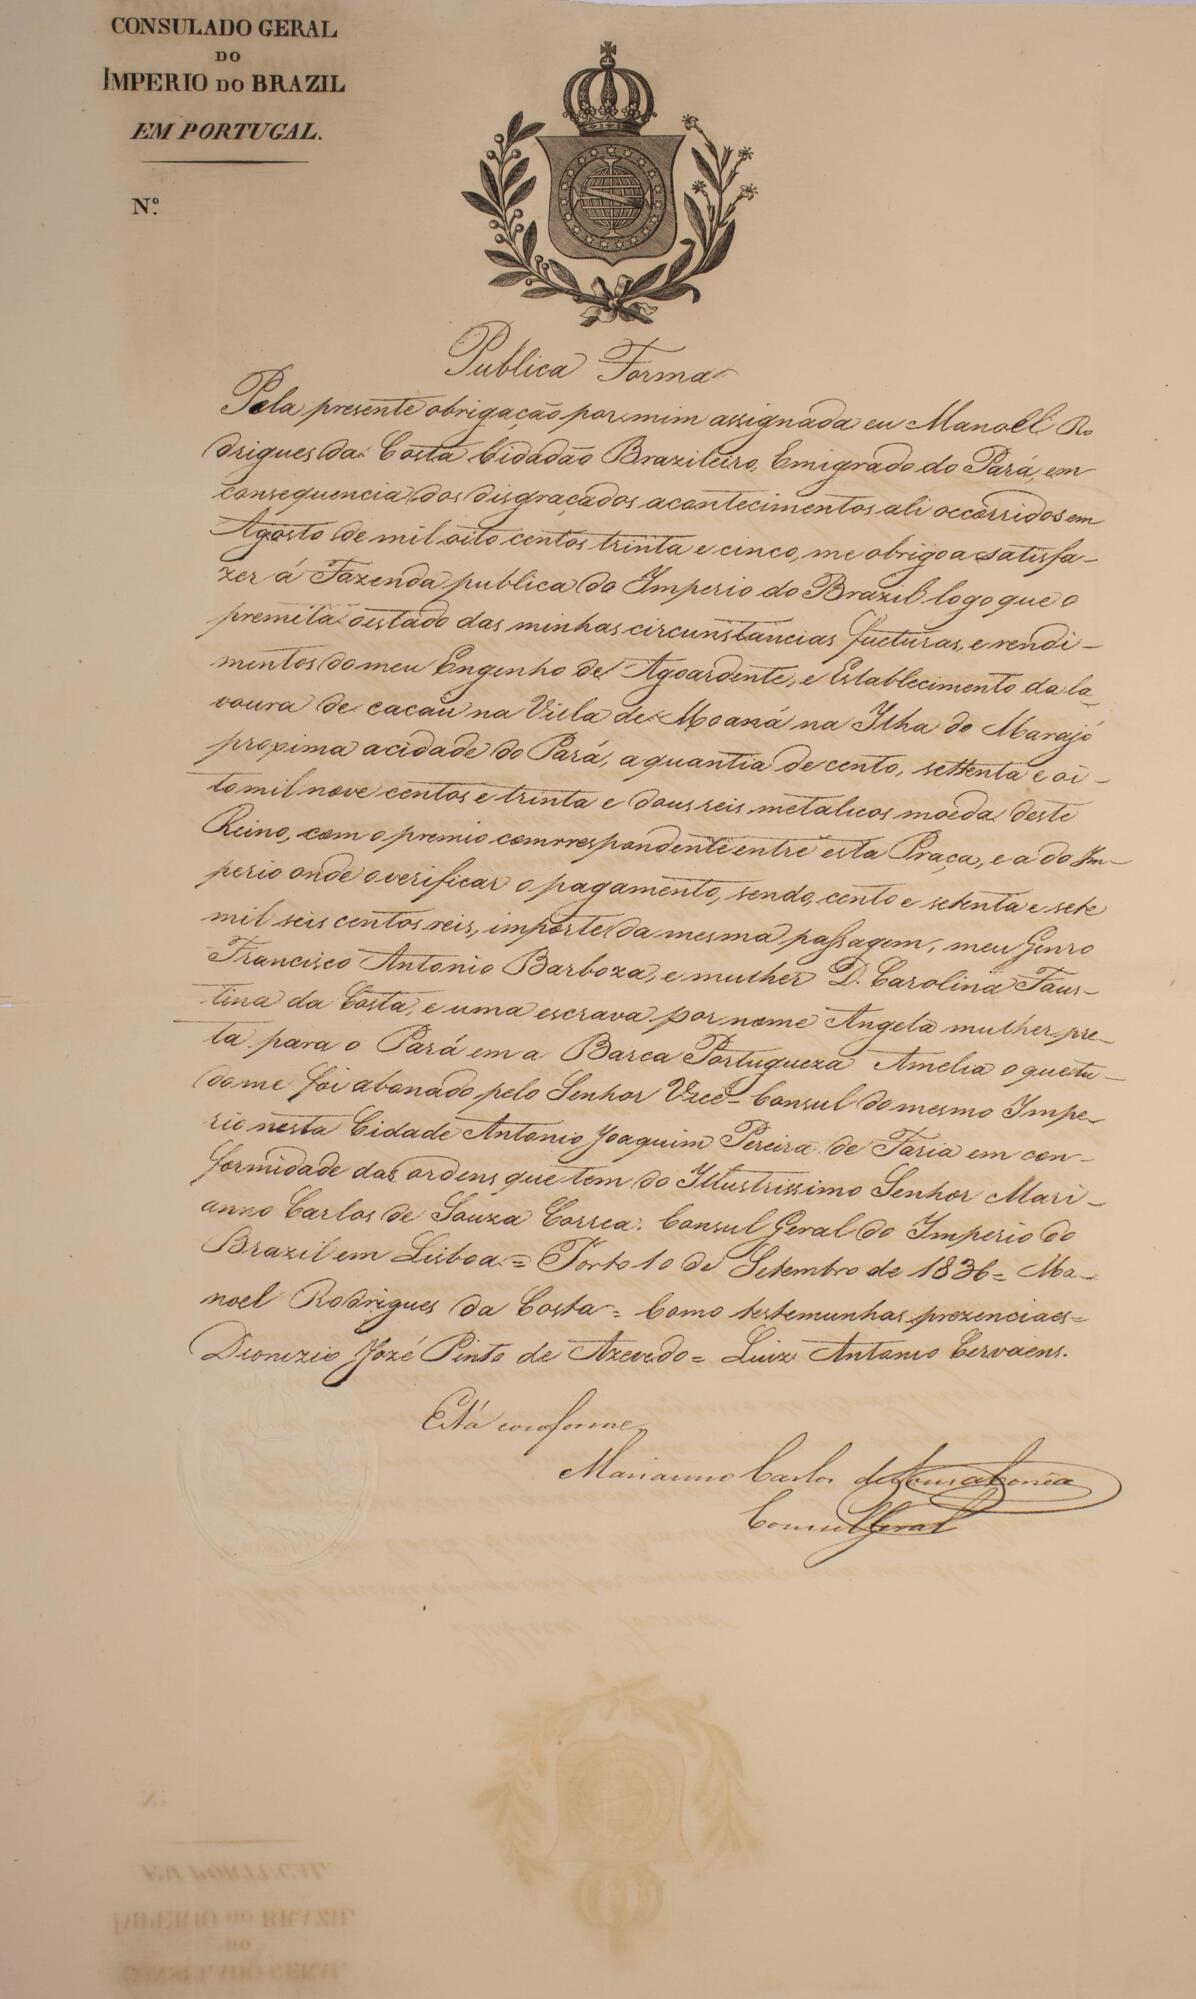 CONSULADO GERAL
DO
IMPERIO DO BRAZIL
EM PORTUGAL.
Nº.
Publica Forma
Pela presente obrigação por mim assignada eu Manoel Ro
drigues da Costa Cidadão Brazileiro, Emigrado do Pará, em
consequencia dos disgraçados acontecimentos ali occorridos em
Agosto de mil oito centos trinta e cinco, me obrigo a satisfa-
zer á Fazenda publica do Imperio do Brazil logo que o
premita o estado das minhas circunstancias fucturas, e rendi-
mentos do meu Engenho de Agoardente, e Establecimento da la-
voura de cacau na Villa de Moaná na Ilha do Marajó
proxima a cidade do Pará, a quantia de cento, settenta e oi-
to mil nove centos e trinta e dous reis metalicos moeda deste
Reino, com o premio comrrespondente entre esta Praça, e a do Im-
perio onde o verificar o pagamento, sendo, cento e setenta e sete
mil seis centos reis, importe da mesma passagem, meu Genro
Francisco Antonio Barboza, e mulher D. Carolina Faus-
tina da Costa, e uma escrava por nome Angela mulher pre-
ta para o Pará em a Barca Portugueza Amelia o que tu-
do me foi abonado pelo Senhor Vice-Consul do mesmo Impe-
rio nesta Cidade Antonio Joaquim Pereira de Faria em con-
formidade das ordens que tem do Illustrissimo Senhor Mari-
anno Carlos de Souza Correa. Consul Geral do Imperio do
Brazil em Lisboa = Porto 10 de Setembro de 1836 = Ma-
noel Rodrigues da Costa = Como testemunhas prezenciaes =
Dionizio Jozé Pinto de Azevedo = Luiz Antonio Cervaens.
Está conforme
Marianno Carlos de Souza Corrêa
Consul Geral